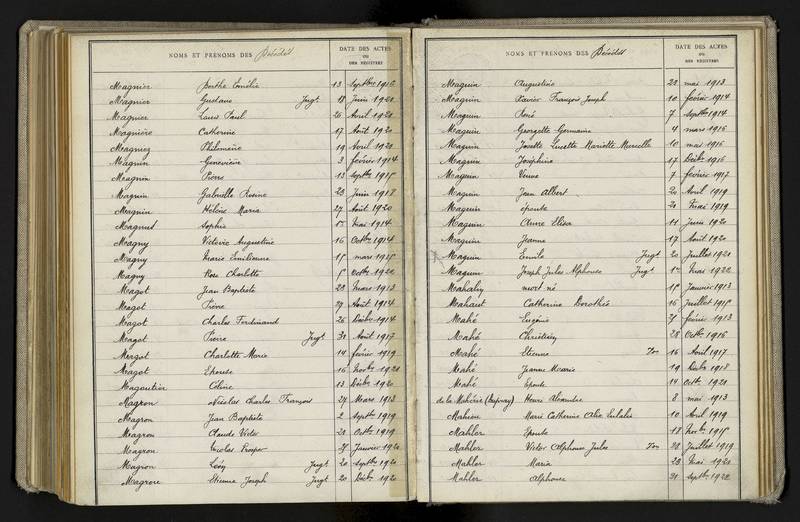 NOMS ET PRÉNOMS DES Décédés
DATE DES ACTES
OU
DES REGISTRES
Magnier Berthe Emélie 13 Septbre 1916
Magnier Gustave Jugt 18 Juin 1920
Magnier Louis Paul 26 Avril 1920
Magnière Catherine 17 Août 1920
Magniez Philomène 19 Avril 1920
Magnin Geneviève 3 février 1914
Magnin Pierre 13 Septbre 1915
Magnin Gabrielle 23 Juin 1918
Magnin Hélène Maria 27 Août 1920
Sophie Mai 1914
Magny Victoire Augustine 16 Octbre 1914
Magny Marie Emilienne mars 1915
Magny Rose Charlotte Octbre 1920
Magot Jean Baptiste 28 Mars 1913
Magot 29 Août 1914
Magot Charles Ferdinand 26 Décbre 1914
Magot Pierre Jugt 31 Août 1917
Magot Charlotte Marie 14 février 1919
Magot Epouse 16 Novbre 1920
Magoutier Céline 13 Décbre 1920
Magron Nicolas Charles François 27 Mars 1913
Magron Jean Baptiste 2 Septbre 1919
Magron Claude Victor 20 Octbre 1919
Magron Nicolas Prosper Janvier 1920
Magron Léon Jugt 20 Septbre 1920
Magron Etienne Joseph Jugt 20 Décbre 1920
NOMS ET PRÉNOMS DES Décédés
DATE DES ACTES
OU
DES REGISTRES
Maguin Augustine 22 mai 1913
Maguin Xavier François Joseph 10 février 1914
Maguin René 7 Septbre 1914
Maguin Georgette Germaine 4 mars 1916
Maguin Josette Lucette Mariette Marcelle 10 mai 1916
Maguin Joséphine 17 Décbre 1916
Maguin 7 février 1917
Maguin Jean Albert 20 Avril 1919
Maguin épouse 20 Mai 1919
Maguin Anne Elisa 11 Juin 1920
Maguin Jeanne 17 Août 1920
Maguin Emile Jugt 20 Juillet 1920
Maguin Joseph Jules Alphonse Jugt Mai 1922
Mahaby mort né Janvier 1913
Mahaut Catherine Dorothée 16 Juillet 1915
Mahé Eugénie février 1913
Mahé Christian 28 Octbre 1916
Mahé Etienne Ton 16 Avril 1917
Mahé Jeanne Marie 19 Décbre 1918
Mahé Epouse 14 Octbre 1920
de la Mahérie (Aupray) Henri Alexandre 8 mai 1913
Mahieu Marie Catherine Alix Eulalie 10 Avril 1919
Mahler Epouse 18 Novbre 1915
Mahler Victor Alphonse Jules Ton 28 Juillet 1919
Mahler Maria 23 Mai 1920
Mahler Alphonse 21 Septbre 1922